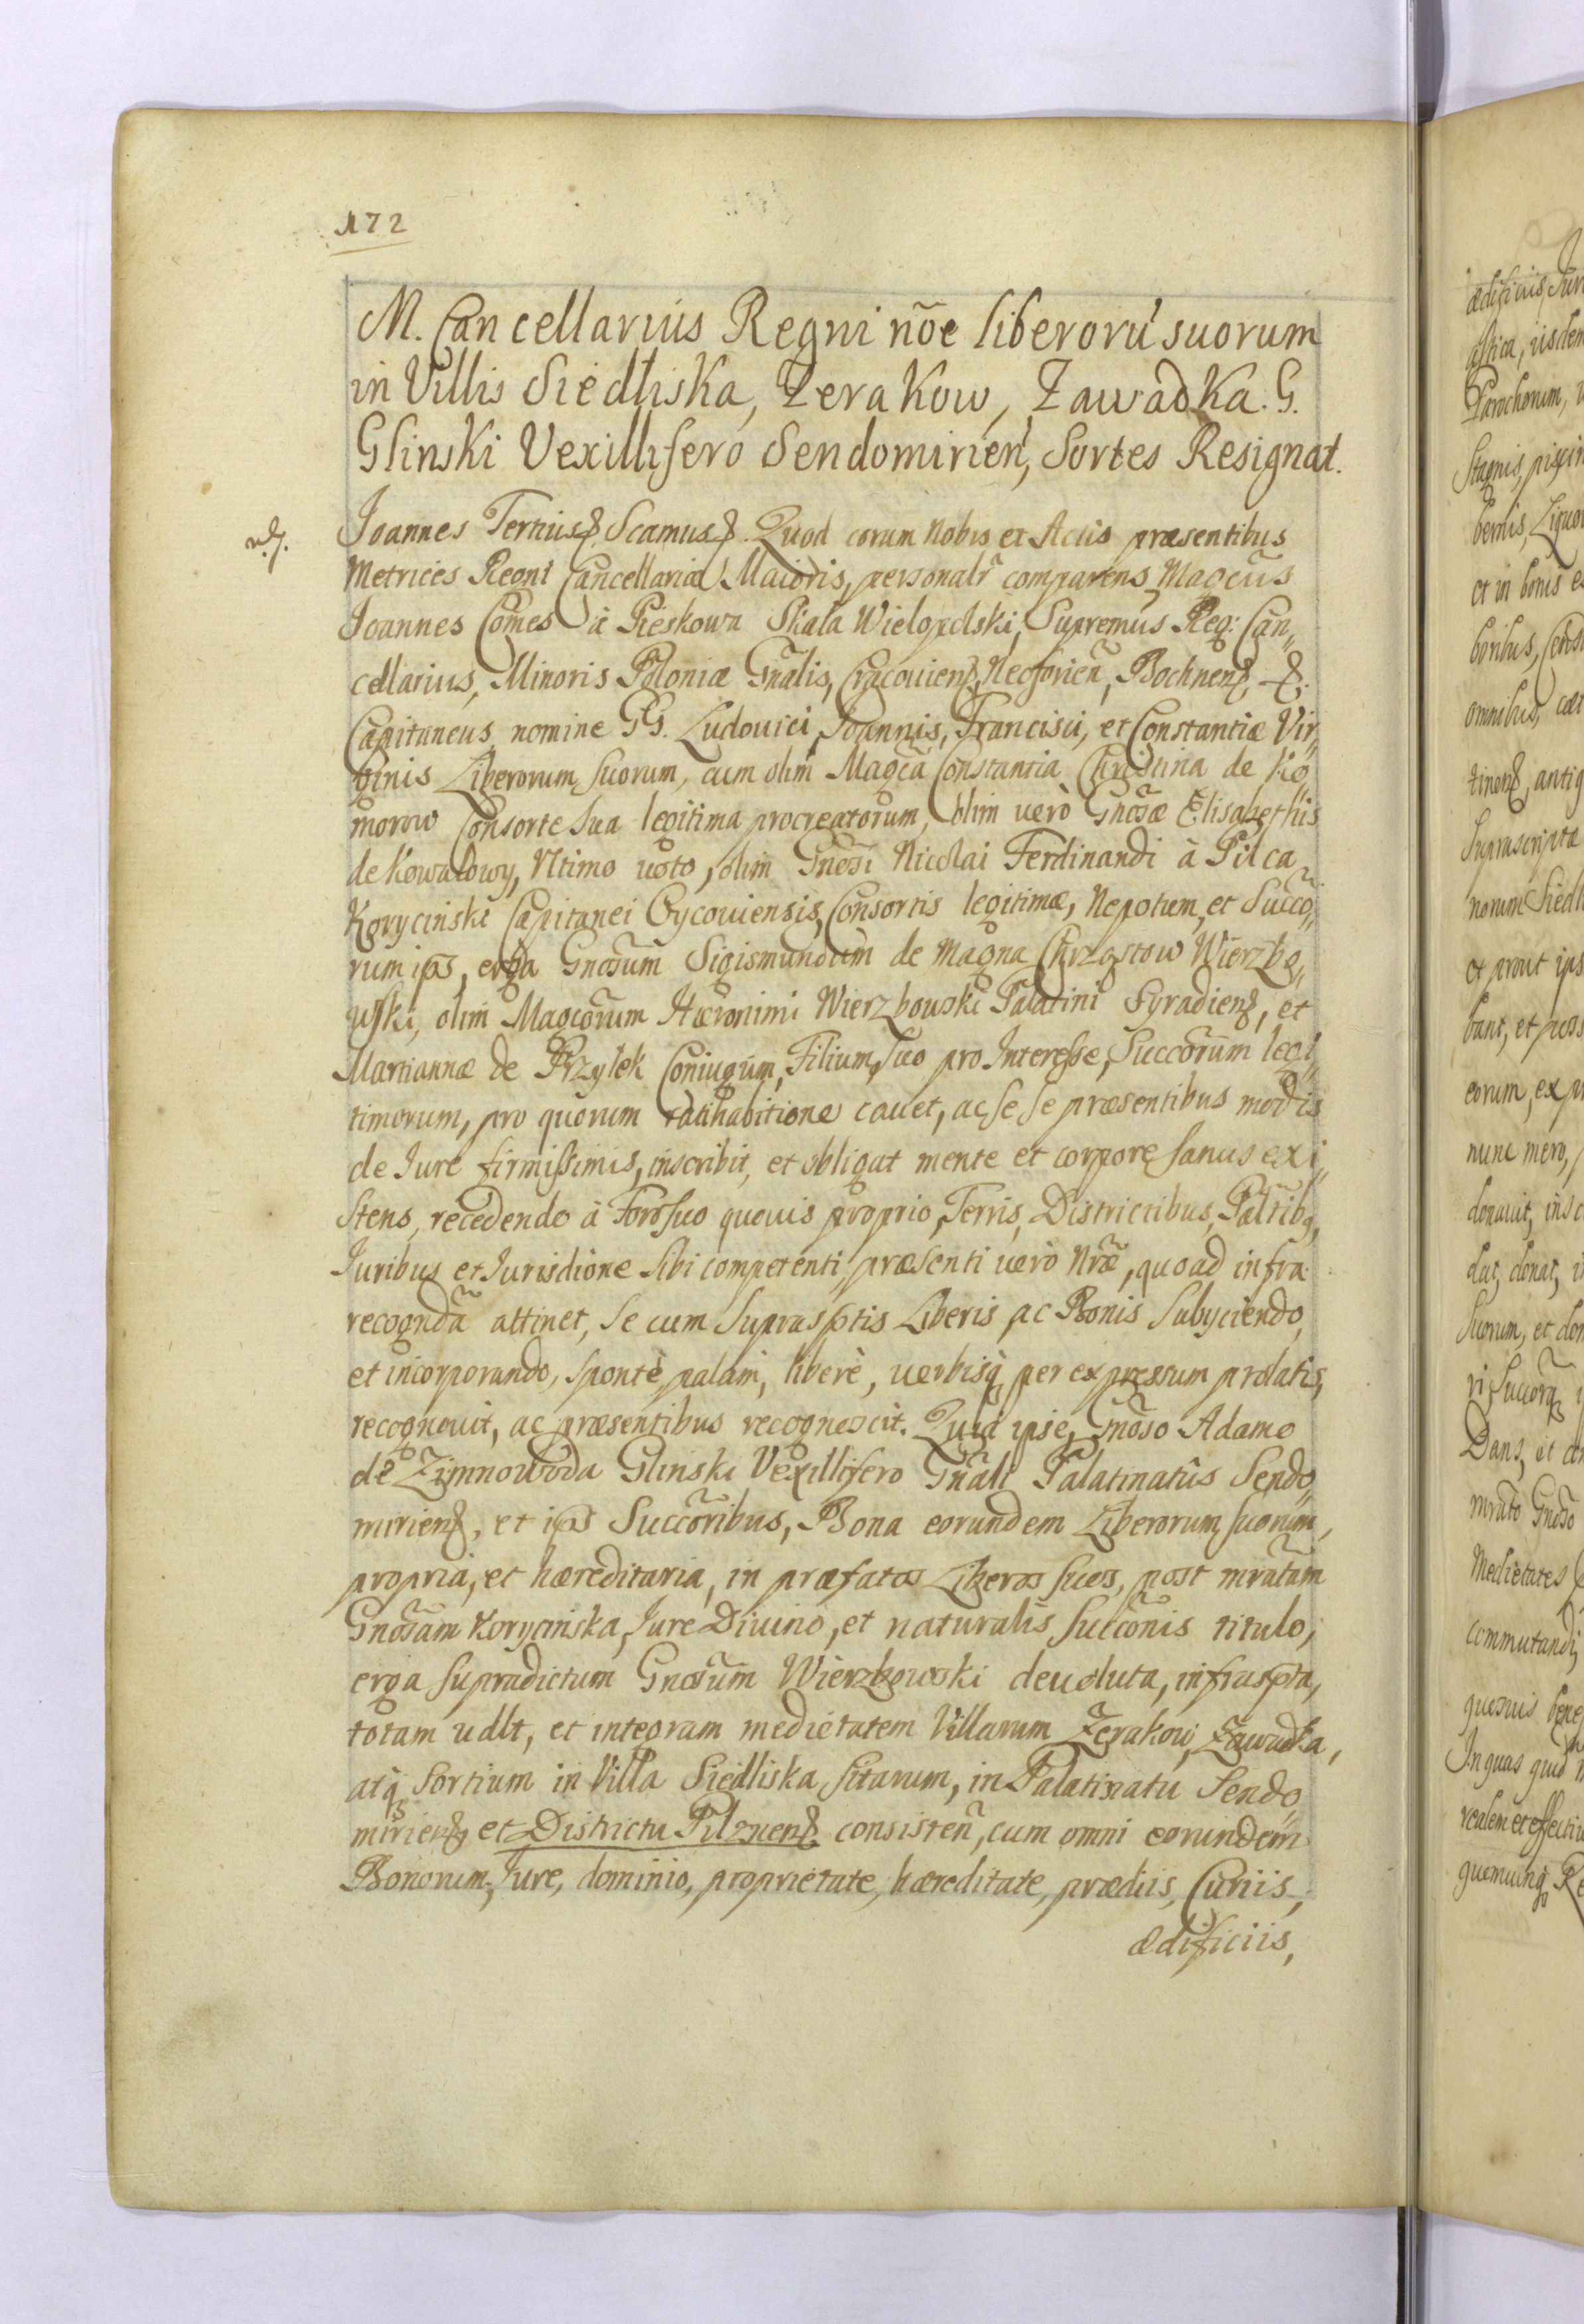 172
M. Cancellarius Regni nõe liberorũ suorum
in Villis Siedliska, Zerakow, Zawadka. G.
Glinski Vexillifero Sendomirień, Sortes Resignat.
Joannes Tertius Scamus. Quod coram Nobis et Actis præsentibus
Metrices Regni Cancellariæ Maioris, personalr̃ comparens Magcũs
Joannes Comes à Pieskowa Skala Wielopolski, Supremus Reg: Can„
cellarius, Minoris Poloniæ Gñalis, Cracouien, Neoforieñ, Bochnen, &.
Capitaneus nomine GG. Ludouici, Joannis, Francisci, et Constantiæ Vir„
ginis Liberorum suorum, cum olim Magcã Constantia Christina de Ko„
morow Consorte sua legitima procreatorum, olim uerò Gnõsæ Elisabethis
de Kowalowy, Vltimo uoto, olim Gnõsi Nicolai Ferdinandi à Pilca
Koryciński Capitanei Oycouiensis, Consortis legitimæ, Nepotum, et Succõ„
rum ips, erga Gnosũm Sigismundum de Magna Chrzqstow Wierzbo„
uski, olim Magcõrum Hieronimi Wierzbouski Palatini Syradien, et
Martiannæ de Przylek Coniugum, Filium, suo pro Interesse, Succõrum legi„
timorum, pro quorum ratihabitione cauet, ac se se præsentibus modis
de Jure firmissimis, inscribit, et obligat mente et corpore sanus exi„
stens, recedendo à Foro suo quouis proprio, Terris, Districtibus, Paltĩbq,
Juribus et Jurisdione sibi competenti, præsenti uerò Nrõ, quoad infra
recogndã attinet, se cum suprasptis Liberis ac Bonis subyciendo,
et incorporando, spontè, palàm, liberè, uerbisq per expressum prolatis,
recognouit, ac præsentibus recognoscit. Quia ipse, Gnõso Adamo
de Zimnowoda Glinski Vexillifero Gñali Palatinatûs Sendo„
mirien, et ips Succõribus, Bona eorundem Liberorum suorum,
propria, et hæreditaria, in præfatos Liberos suos, post mratam̃
Gnõsam Korycinska, Jure Diuino, et naturalis Succõnis titulo,
erga supradictum Gnosũm Wierzbowski deuoluta, infraspta,
totam udlt, et integram medietatem Villarum Zerakow, Zawadka,
atq Sortium in Villa Siedliska sitarum, in Palatinatu Sendo„
mirien et Districtu Pilznen consisteñ, cum omni eorundem
Bonorum, Jure, dominio, proprietate, hæreditate, prædiis, Curiis,
ædificiis,